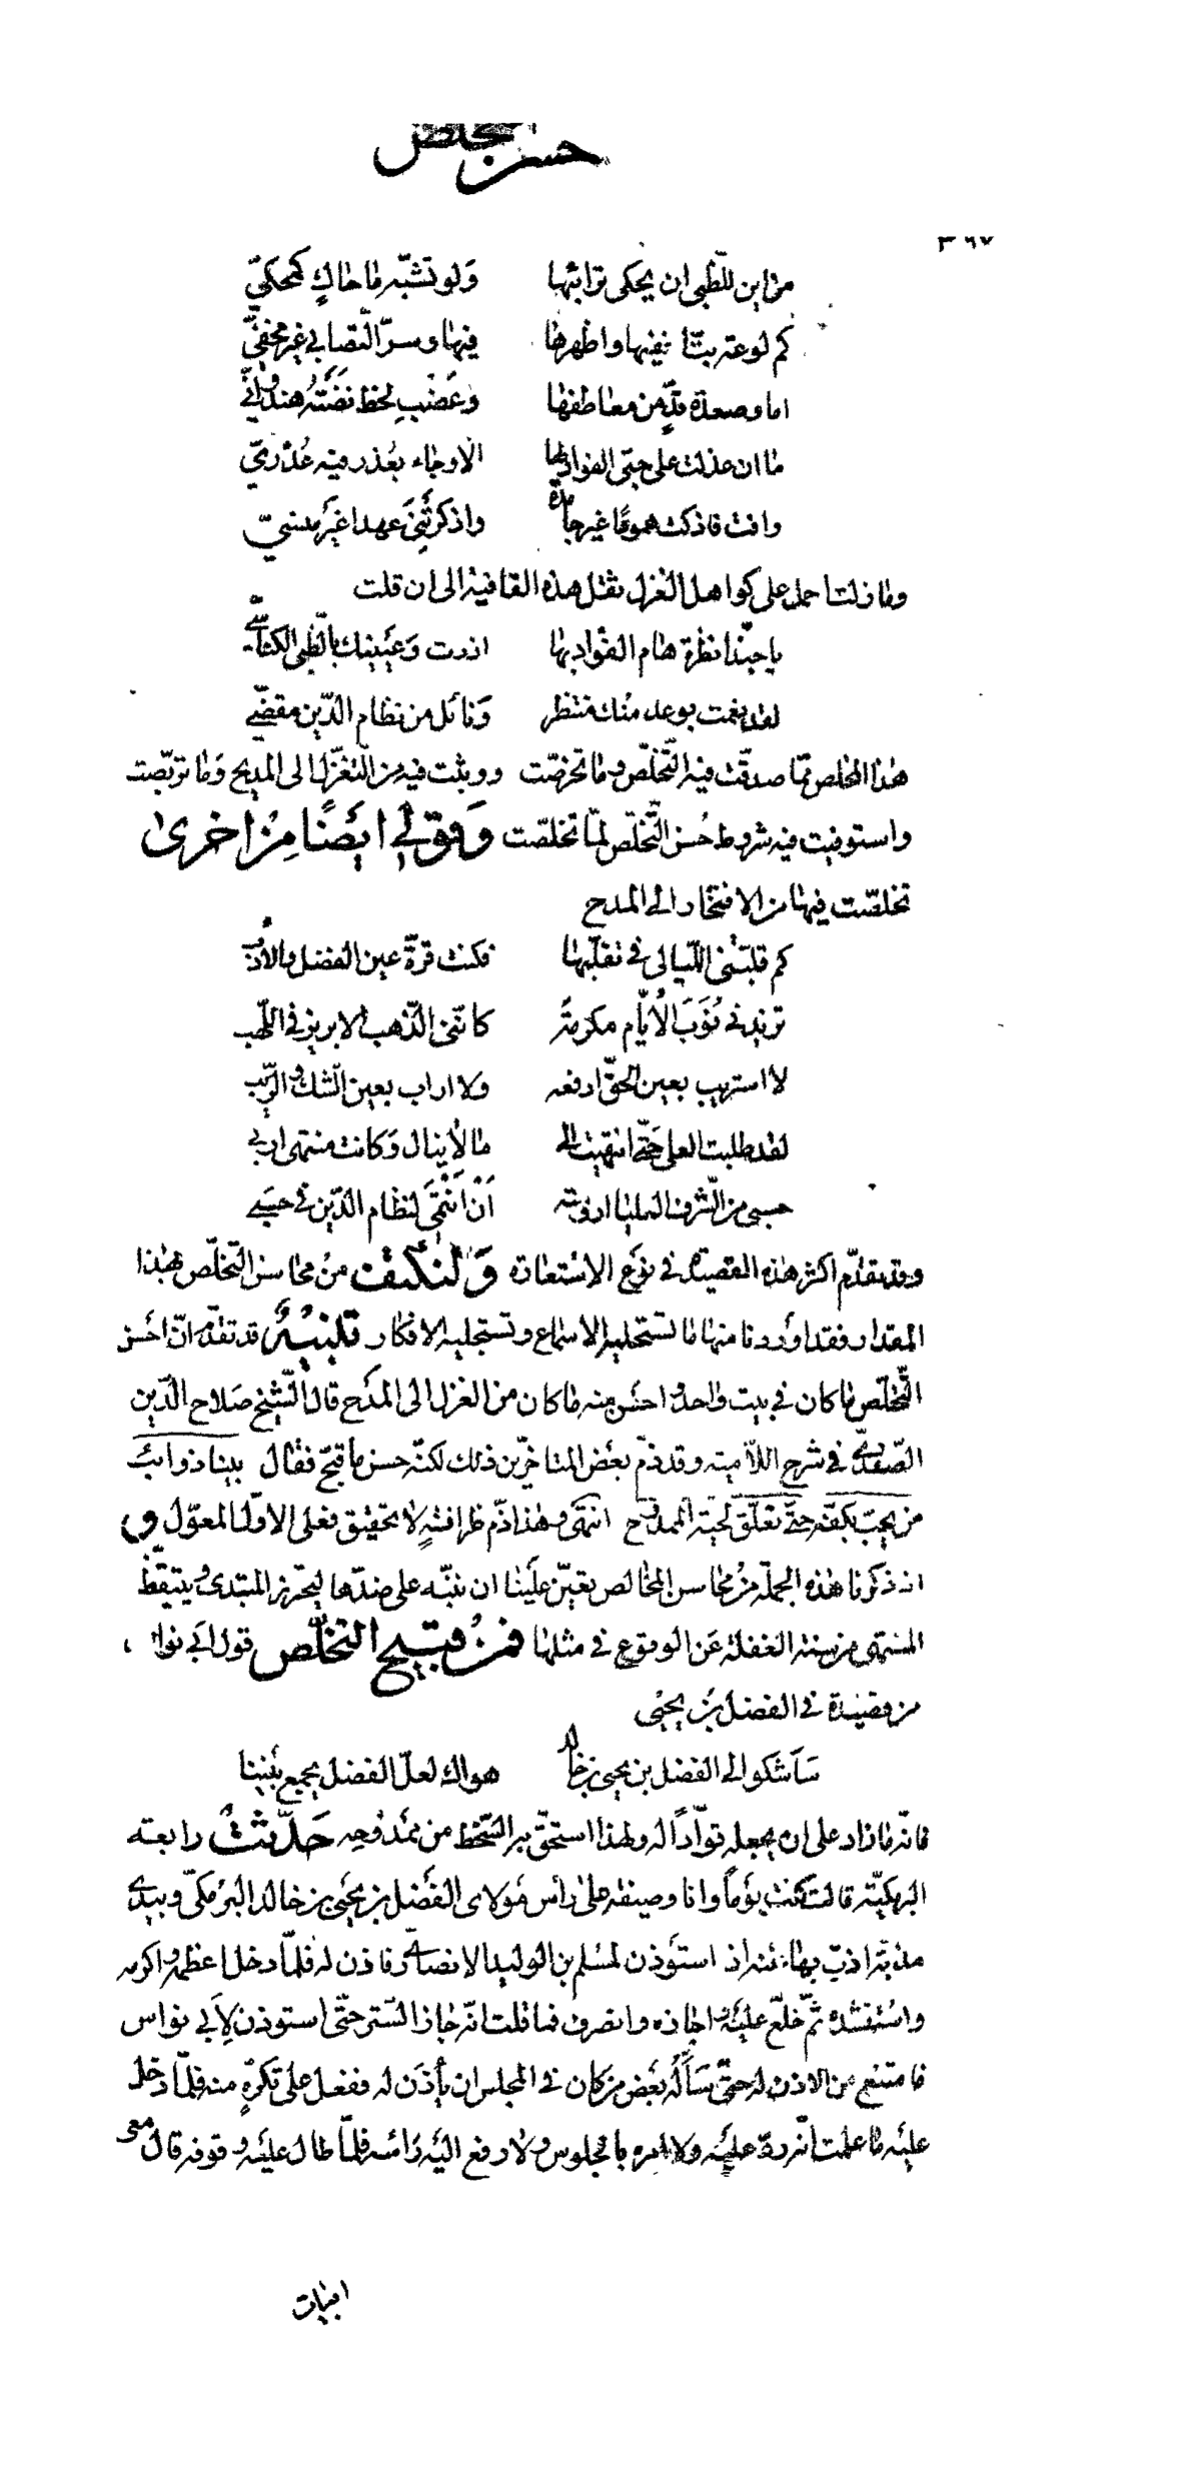 حسن تخلص
٣٦٧
من اين للظبى ان يحكى ترائبها ولو تشبّه ما حاكٍ كمحكيّ
كم لوعة بتّنا نخفيها واظهرها فيها وسرّ التصابي غير مخفيّ
اما وصعدة قدٍّ من معاطفها وعَضْبِ لحظ نَضَتْهُ هندوانيّ
ما ان عذلت على حبّى الفؤاد لها الا وجاء بعذر منه عُذْريّ
وافت فاذكت هموما غير جامدة واذكَرَتْنِى عهدا غير منسيّ
وما زلت احمل على كواهل الغزل ثقل هذه القافية الى ان قلت
يا حبّذا نظرة هام الفؤاد بها ازرت وَعَيْنيك بالظبى الكناسيّ
لقد نعمت بوعد منك منتظر ونائل من نظام الدّين مقضيّ
هذا المخلص ممّا صدقت فيه التّخلّص وما تخرصت ووثبت فيه من التّغزّل الى المديح وما تربّصت
واستوفيت فيه شروط حُسن التّخلّص لمّا تخلصّت وَقولي ايضًا مِنْ اخرىٰ
تخلصّت فيها من الافتخار الى المدح
كم قلبتنى اللّيالى فى تقلّبها فكنت قرّة عين الفضل والأدب
تزيدنى نُوَبَ الأيّام مكرمةً كانّنى الذّهب الابريز فى اللّهب
لا استريب بعين الحقّ ادفعه ولا اراب بعين الشك والرّيب
لقد طلبت العلى حتّى انتهيت الى ما لا ينال وكانت منتهى اربى
حسبى من الشّرف العليا ارومته أنْ انْتَمَى لنظام الدّين فى حسبى
وقد تقدّم اكثر هذه القصيدة فى نوع الاستعارة وَلنكتف من محاسن التّخلّص بهذا
المقدار فقد اوردنا منها ما تستحليه الاسماع وتستجليه الافكار تنبيهٌ قد تقدّم انّ احسن
التّخلّص ما كان فى بيت واحد واحسن منه ما كان من الغزل الى المدح قال الشّيخ صلاح الدّين
الصّفدى فى شرح اللاّمية وقد ذمّ بعض المتاخّرين ذلك لكنّه حسن ما قبّح فقال بينا ذوائب
من يحبّ بكفّه حتّى تعلّق لحية الممدوح انتهى وهذا ذّم ظرافةٍ لا تحقيق فعلى الاوّل المعوّل و
اذ ذكرنا هذه الجملة من محاسن المخالص تعيّن علينا ان ننبّه على ضدّها ليحترز المبتدى ويتيقّظ
المنتهى من سنة الغفلة عن الوقوع فى مثلها فمن قبيح التخلّص قول ابى نواس
من قصيدة فى الفضل بن يحيى
سَأشكو الى الفضل بن يحيى بن خالد هواك لعلّ الفضل يجمع بيننا
فانّه ما زاد على ان يجعله قوّاداً له ولهذا استحقّ به السّخط من ممدوحه حَدّثتْ رابعة
البرمكيّة قالت كنت يوماً وانا وصيفة على رأس مولاى الفضل بن يحيى بن خالد البرمكىّ وبيدى
مذبّة اذبّ بها عنه اذ استؤذن لمسلم بن الوليد الانصارى فاذن له فلمّا دخل اعظمه واكرمه
واستنشده ثمّ خلع عليه واجازه وانصرف فما قلت انّه جاز السّتر حتّى استوذن لأبى نواس
فامتنع من الاذن له حتّى سأله بعض من كان فى المجلس ان يأذن له ففعل على تكرّهٍ منه فلمّا دخل
عليه ما علمت انّه ردّ عليه ولا امره بالجلوس ولا رفع اليه رأسه فلمّا طال عليه وقوفه قال معى
ابيات